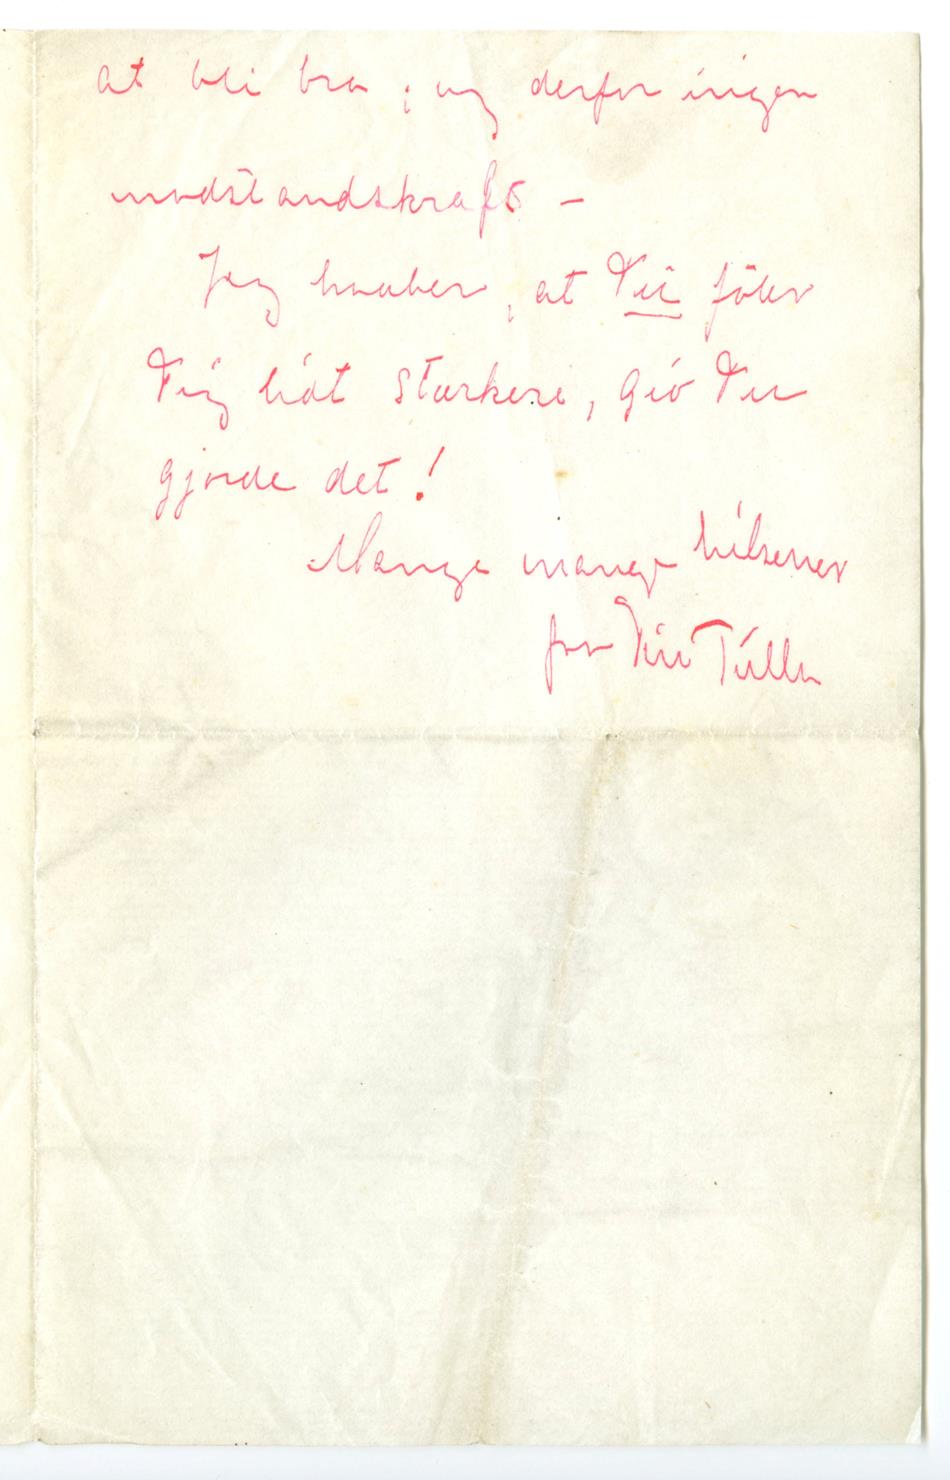 at bli bra; og derfor ingen
modstandskraft –
Jeg haaber, at Du føler
Dig lidt stærkere, gid Du
gjorde det!
Mange mange hilsener
fra Din Tulla